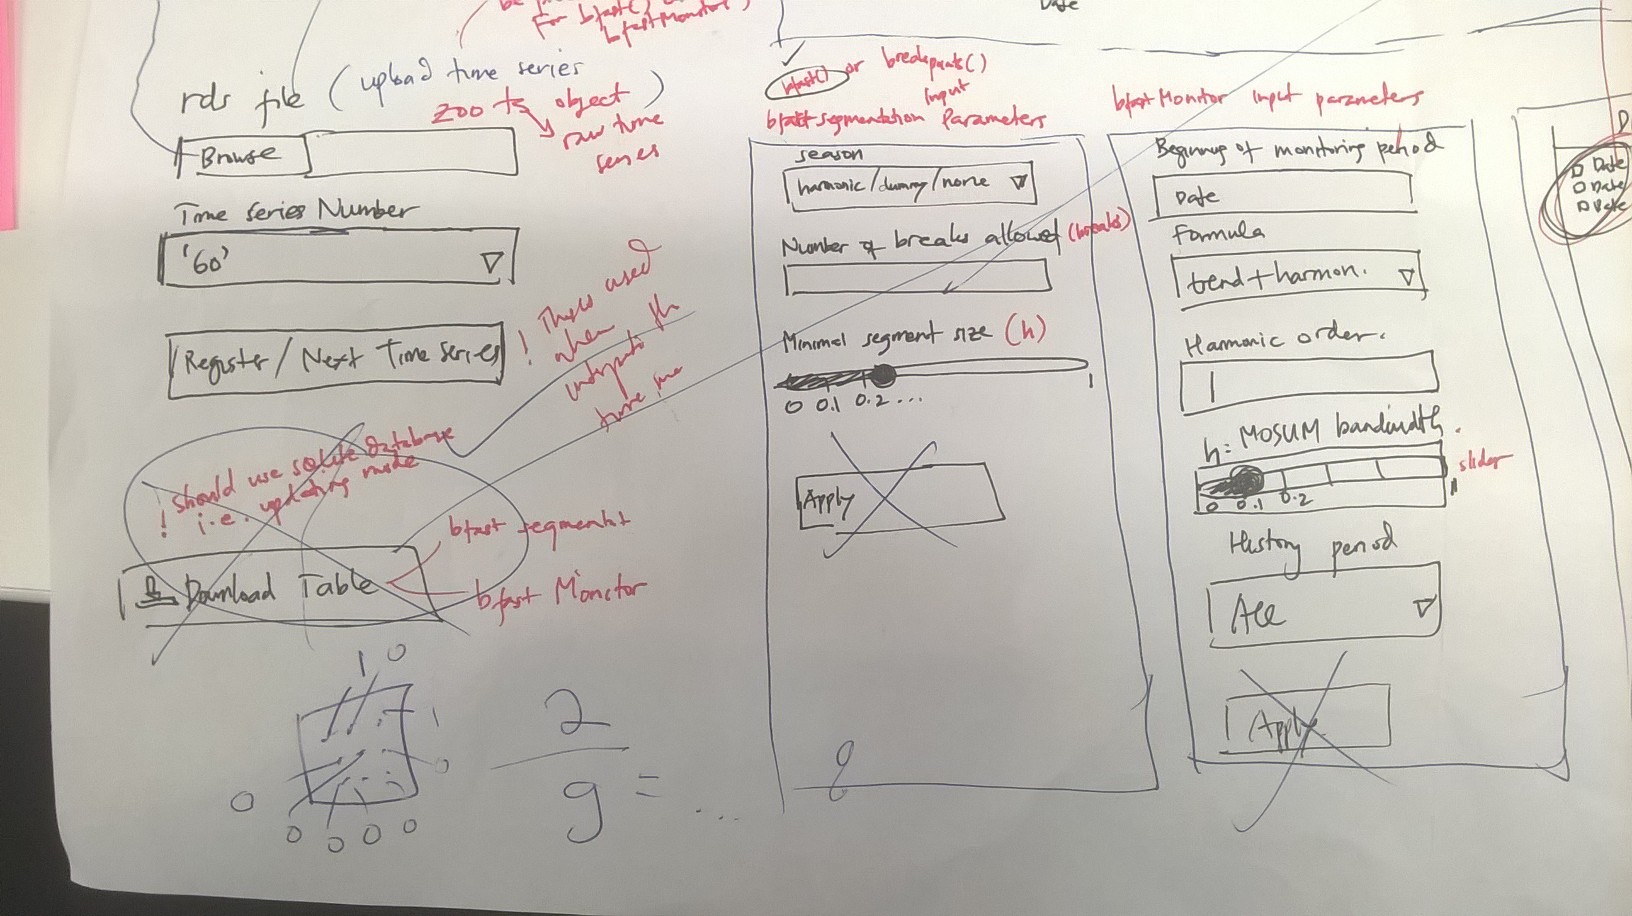 for bfast()
bfastMonitor)
Date
rds file (upload time series
zoo ts object)
raw time
series
Browse
Time series Number
'60'
Register / Next Time series
! This is used
when
time
! should use sqlite database
i.e. updating mode
Download Table
bfast segment
bfast Monitor
1 0
1
0
0
0 0 0 0
2
9 = ...
bfast() or breakpoints()
input
bfast segmentation Parameters
season
harmonic/dummy/none
Number of breaks allowed (breaks)
Minimal segment size (h)
0 0.1 0.2 ...
1
Apply
8
bfastMonitor input parameters
Beginning of monitoring period
Date
Formula
trend + harmon.
Harmonic order.
h: MOSUM bandwidth.
slider
0 0.1 0.2
1
History period
All
Apply
D
Date
Date
Date